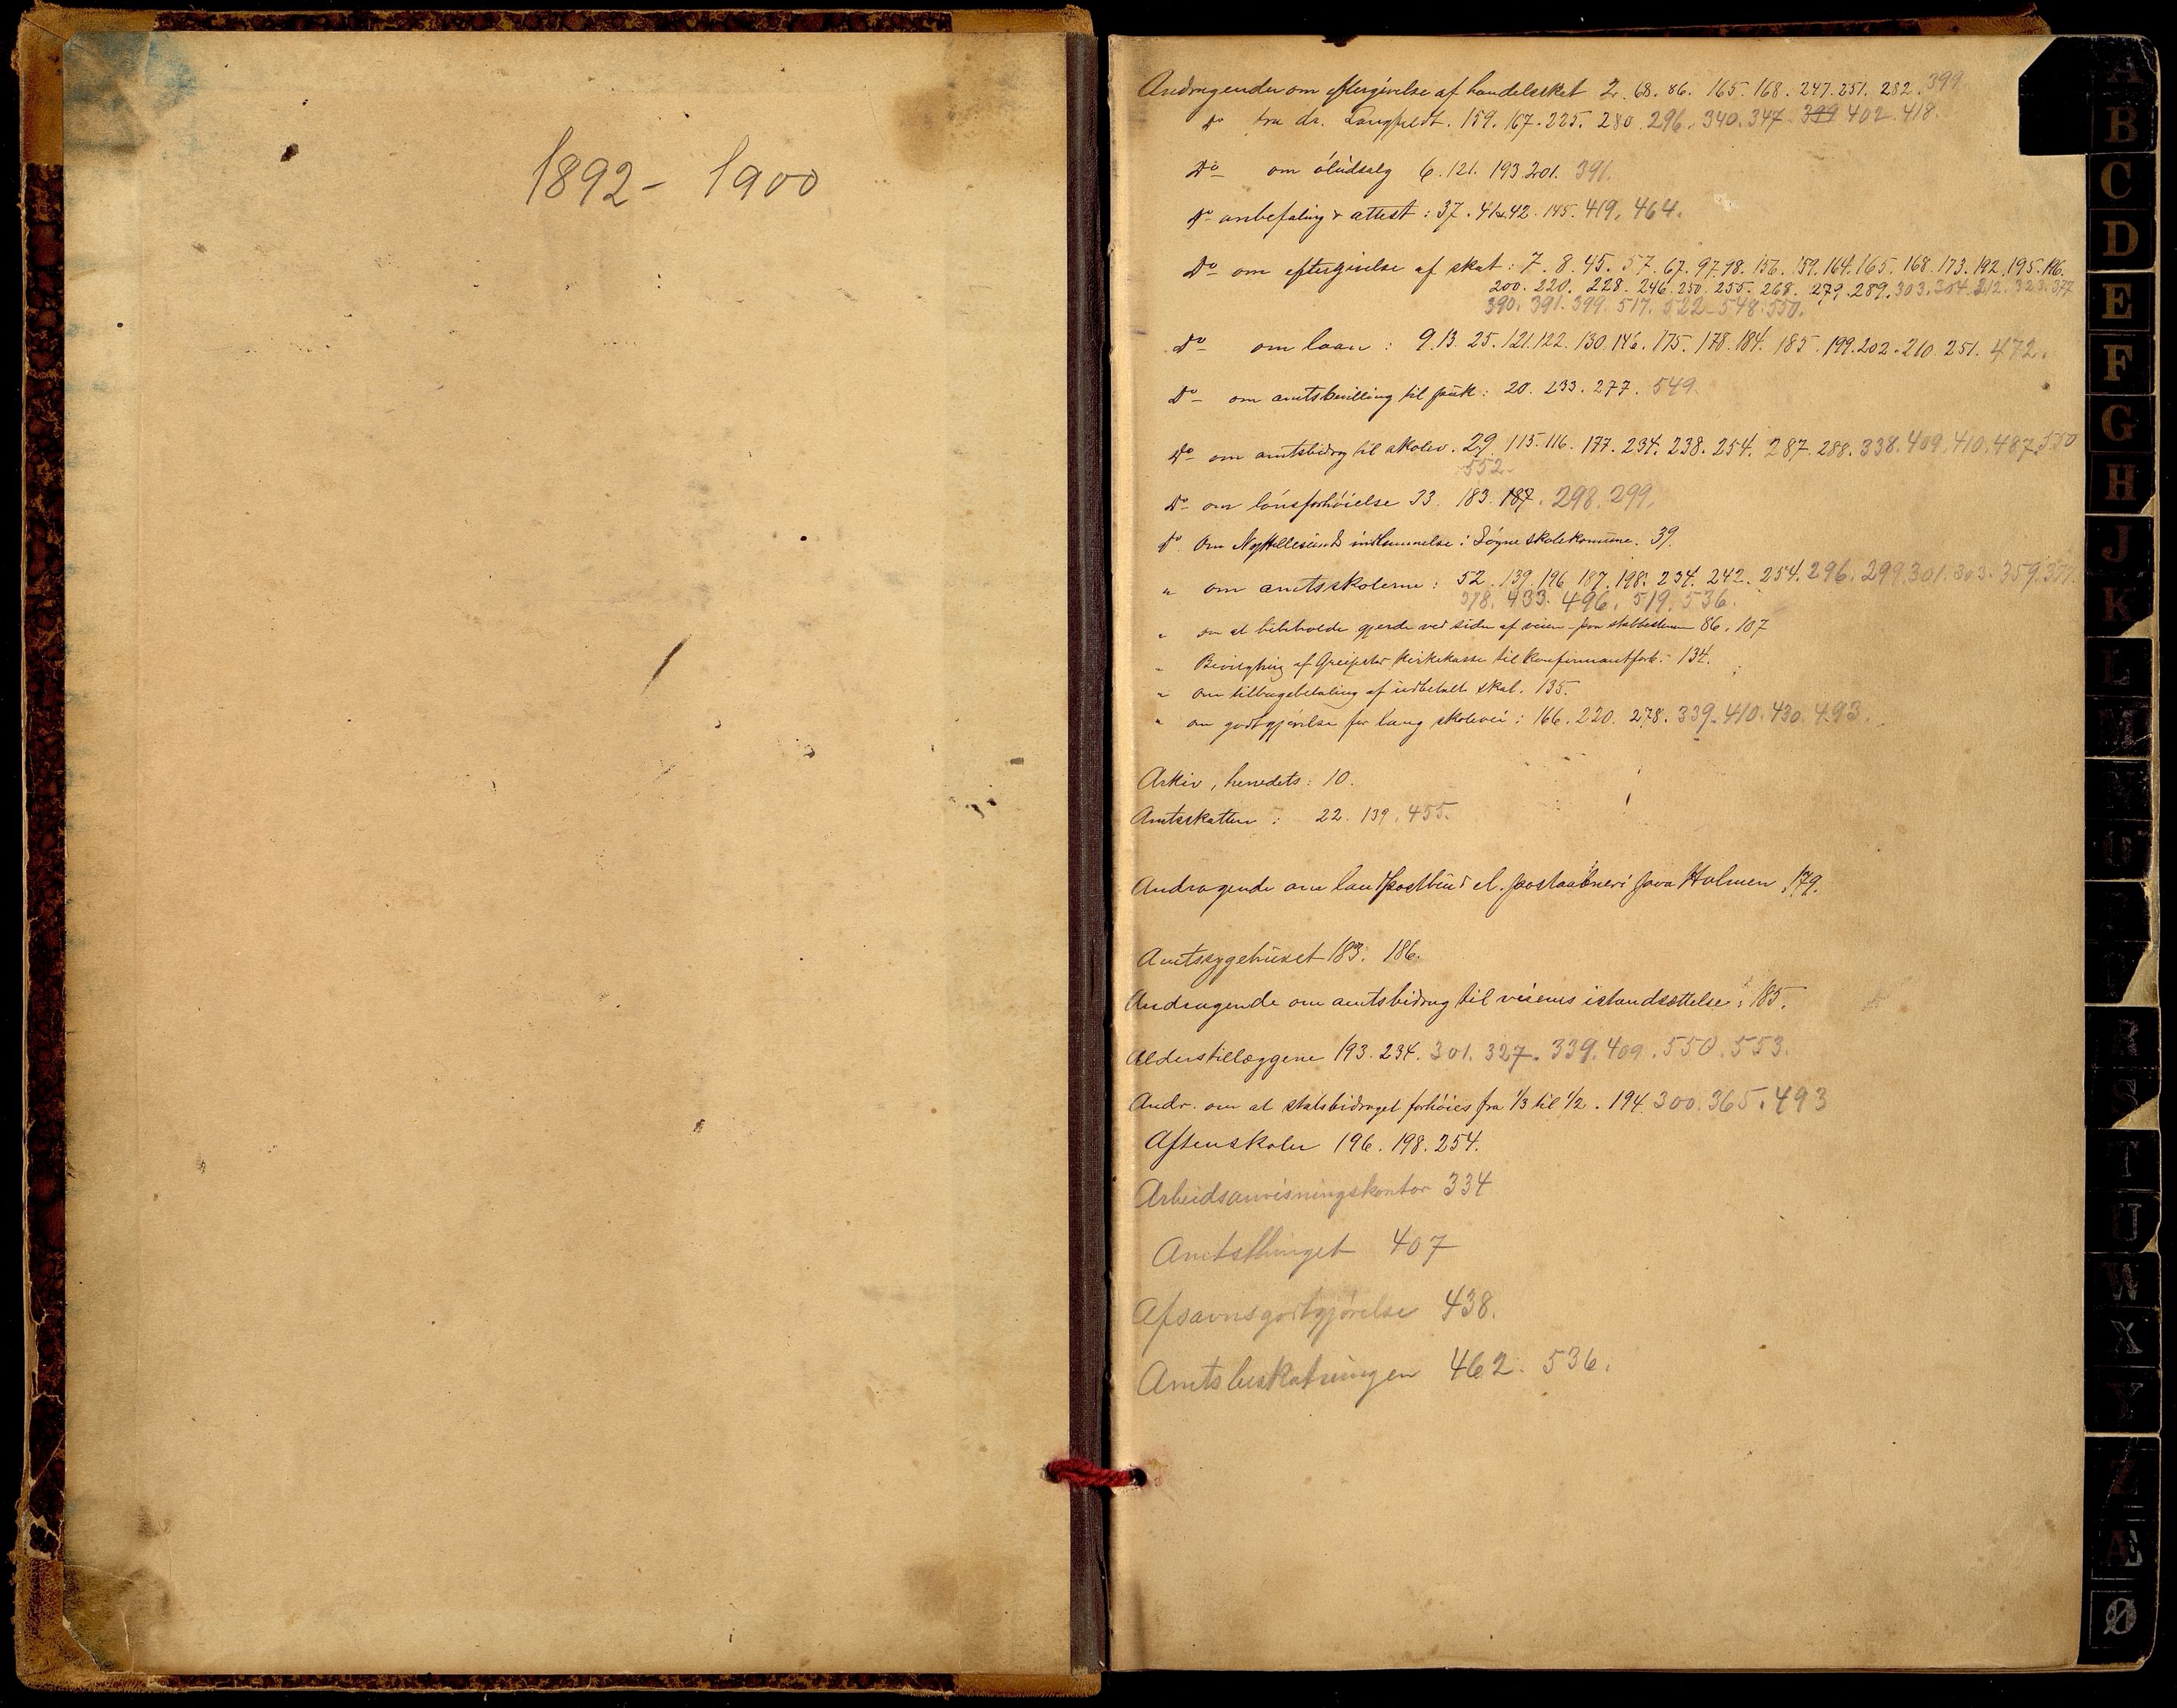 1892 - 1900
Andragender om eftergivelse af handelsskat 2. 68. 86. 165. 168. 247. 251. 282. 399
Do fra dr. Langfeldt. 159. 167. 225. 280. 296. 340. 347. 399 402. 418.
Do om öludsalg 6. 121. 193. 201. 391.
Do anbefaling & attest : 37. 41 42. 145. 419. 464.
Do om eftergivelse af skat : 7. 8. 45. 57. 67. 97. 98. 156. 159. 164. 165. 168. 173. 192. 195. 196.
200. 220. 228. 246. 250. 255. 268. 279. 289. 303. 304. 312. 323. 377
390. 391. 399. 517. 522 - 548. 550.
Do om laan : 9. 13. 25. 121. 122. 130. 146. 175. 178. 184. 185. 199. 202. 210. 251. 472.
Do om amtsbevilling til : 20. 233. 277. 549.
Do om amtsbidrag til skolev. 29. 115. 116. 177. 234. 238. 254. 287. 288. 338. 409. 410. 487. 550
552.
Do om lönsforhöielse 33. 183. 187. 298. 299.
Do Om Ny Hellesunds indlemmelse i Sögne skolekomune. 39.
" om amtsskolerne : 52. 139. 196 187. 198. 234. 242. 254. 296. 299. 301. 303. 359. 377.
378. 433. 496. 519. 536.
" om at bibeholde gjerde ved siden af veien paa 86. 107
" Bevilgning af Greipstad kirkekasse til konfirmantforb. 134.
" om tilbagebetaling af udbetalt skat. 135.
" om godtgjörelse for lang skolevei : 166. 220. 278. 339. 410. 430. 493.
Arkiv, herredets : 10.
Amtsskatten : 22. 139. 455.
Andragende om landpostbud el. postaabneri paa Holmen 179.
Amtssygehuset 183. 186.
Andragende om amtsbidrag til veienes istandsættelse : 185.
Alderstillæggene 193. 234. 301. 327. 339. 409. 550. 553.
Andr. om at statsbidraget forhöies fra 1/3 til 1/2. 194. 300. 365. 493
Aftenskoler 196. 198. 254.
Arbeidsanvisningskontor 334
Amtsthinget 407
Afsavnsgodtgjörelse 438.
Amtsbeskatningen 462. 536.
A
B
C
D
E
F
G
H
J
K
L
M
N
O
P
Q
R
S
T
U
W
X
Y
Z
Æ
Ø